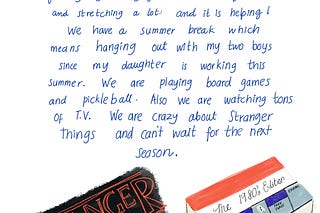 and stretching a lot and it is helping!
We have a summer break which
means hanging out with my two boys
since my daughter is working this
summer. We are playing board games
and pickleball. Also we are watching tons
of T.V. We are crazy about Stranger
Things and can't wait for the next
season.
The 1980's Edition